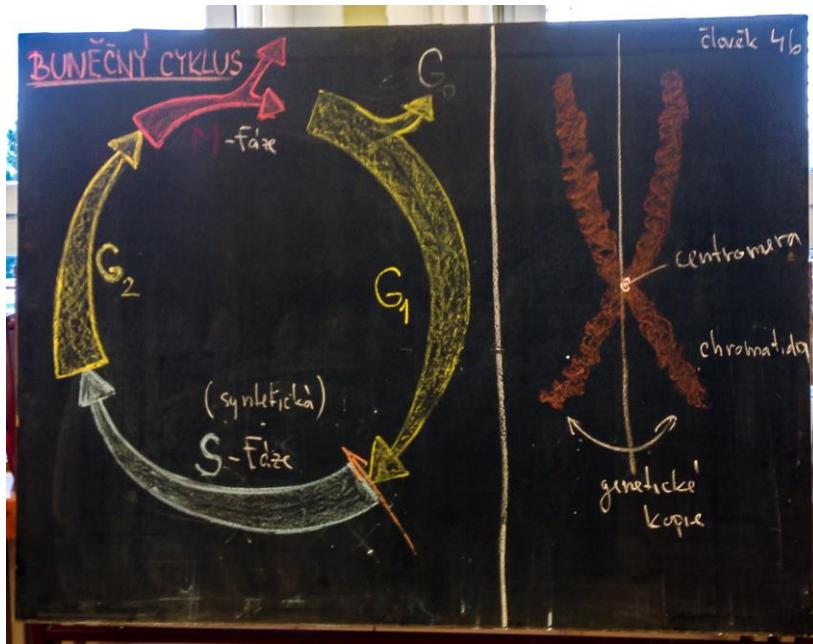 BUNĚČNÝ CYKLUS
M-fáze
G₀
G₁
G₂
(syntetická)
S-fáze
člověk 46
centromera
chromatida
genetické
kopie